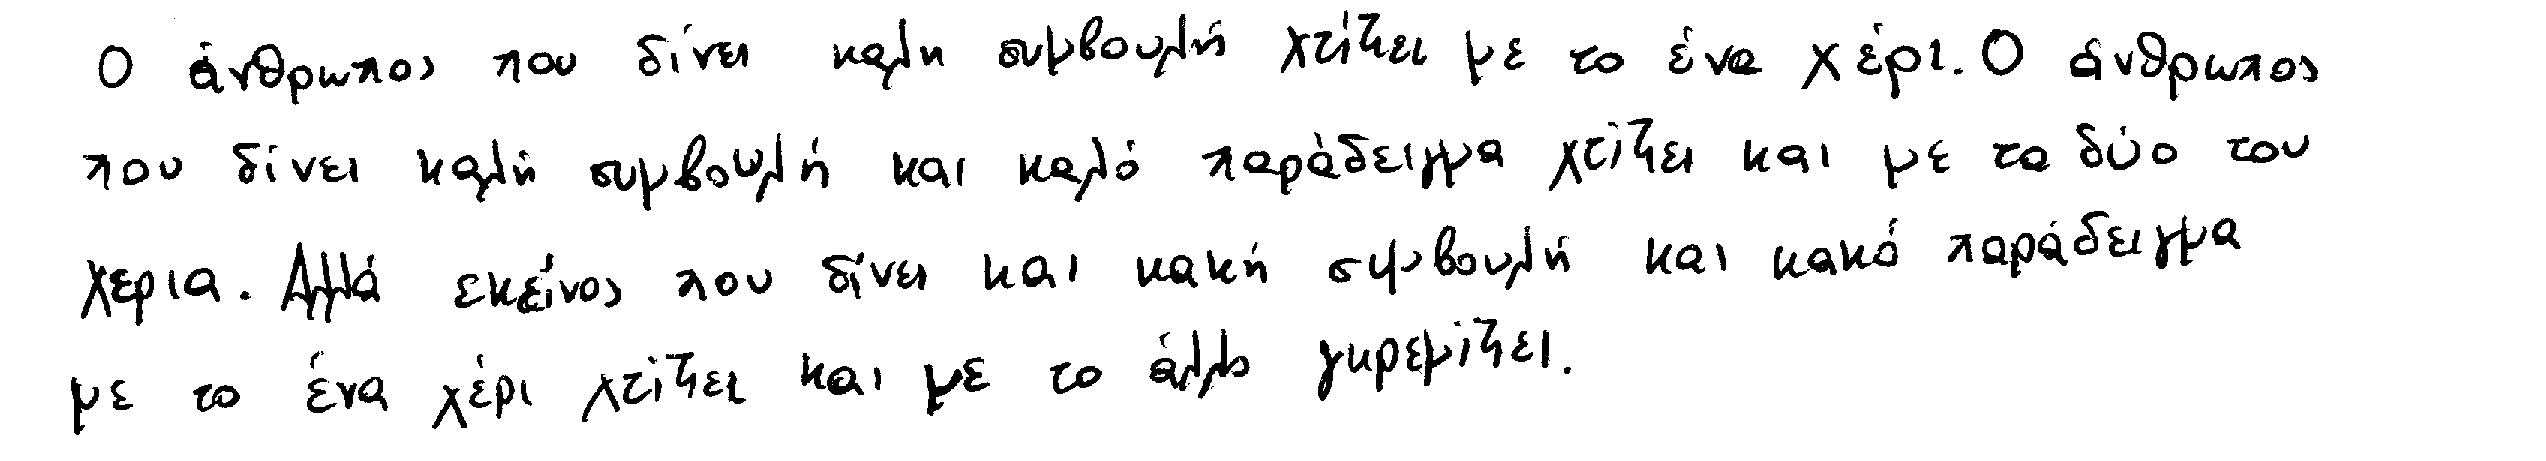 Ο άνθρωπος που δίνει καλη συμβουλή χτίζει με το ένα χέρι. Ο άνθρωπος
που δίνει καλή συμβουλή και καλό παράδειγμα χτίζει και με τα δύο του
χερια. Αλλά εκείνος που δίνει και κακή συμβουλή και κακό παράδειγμα
με το ένα χέρι χτίζει και με το άλλο γκρεμίζει.